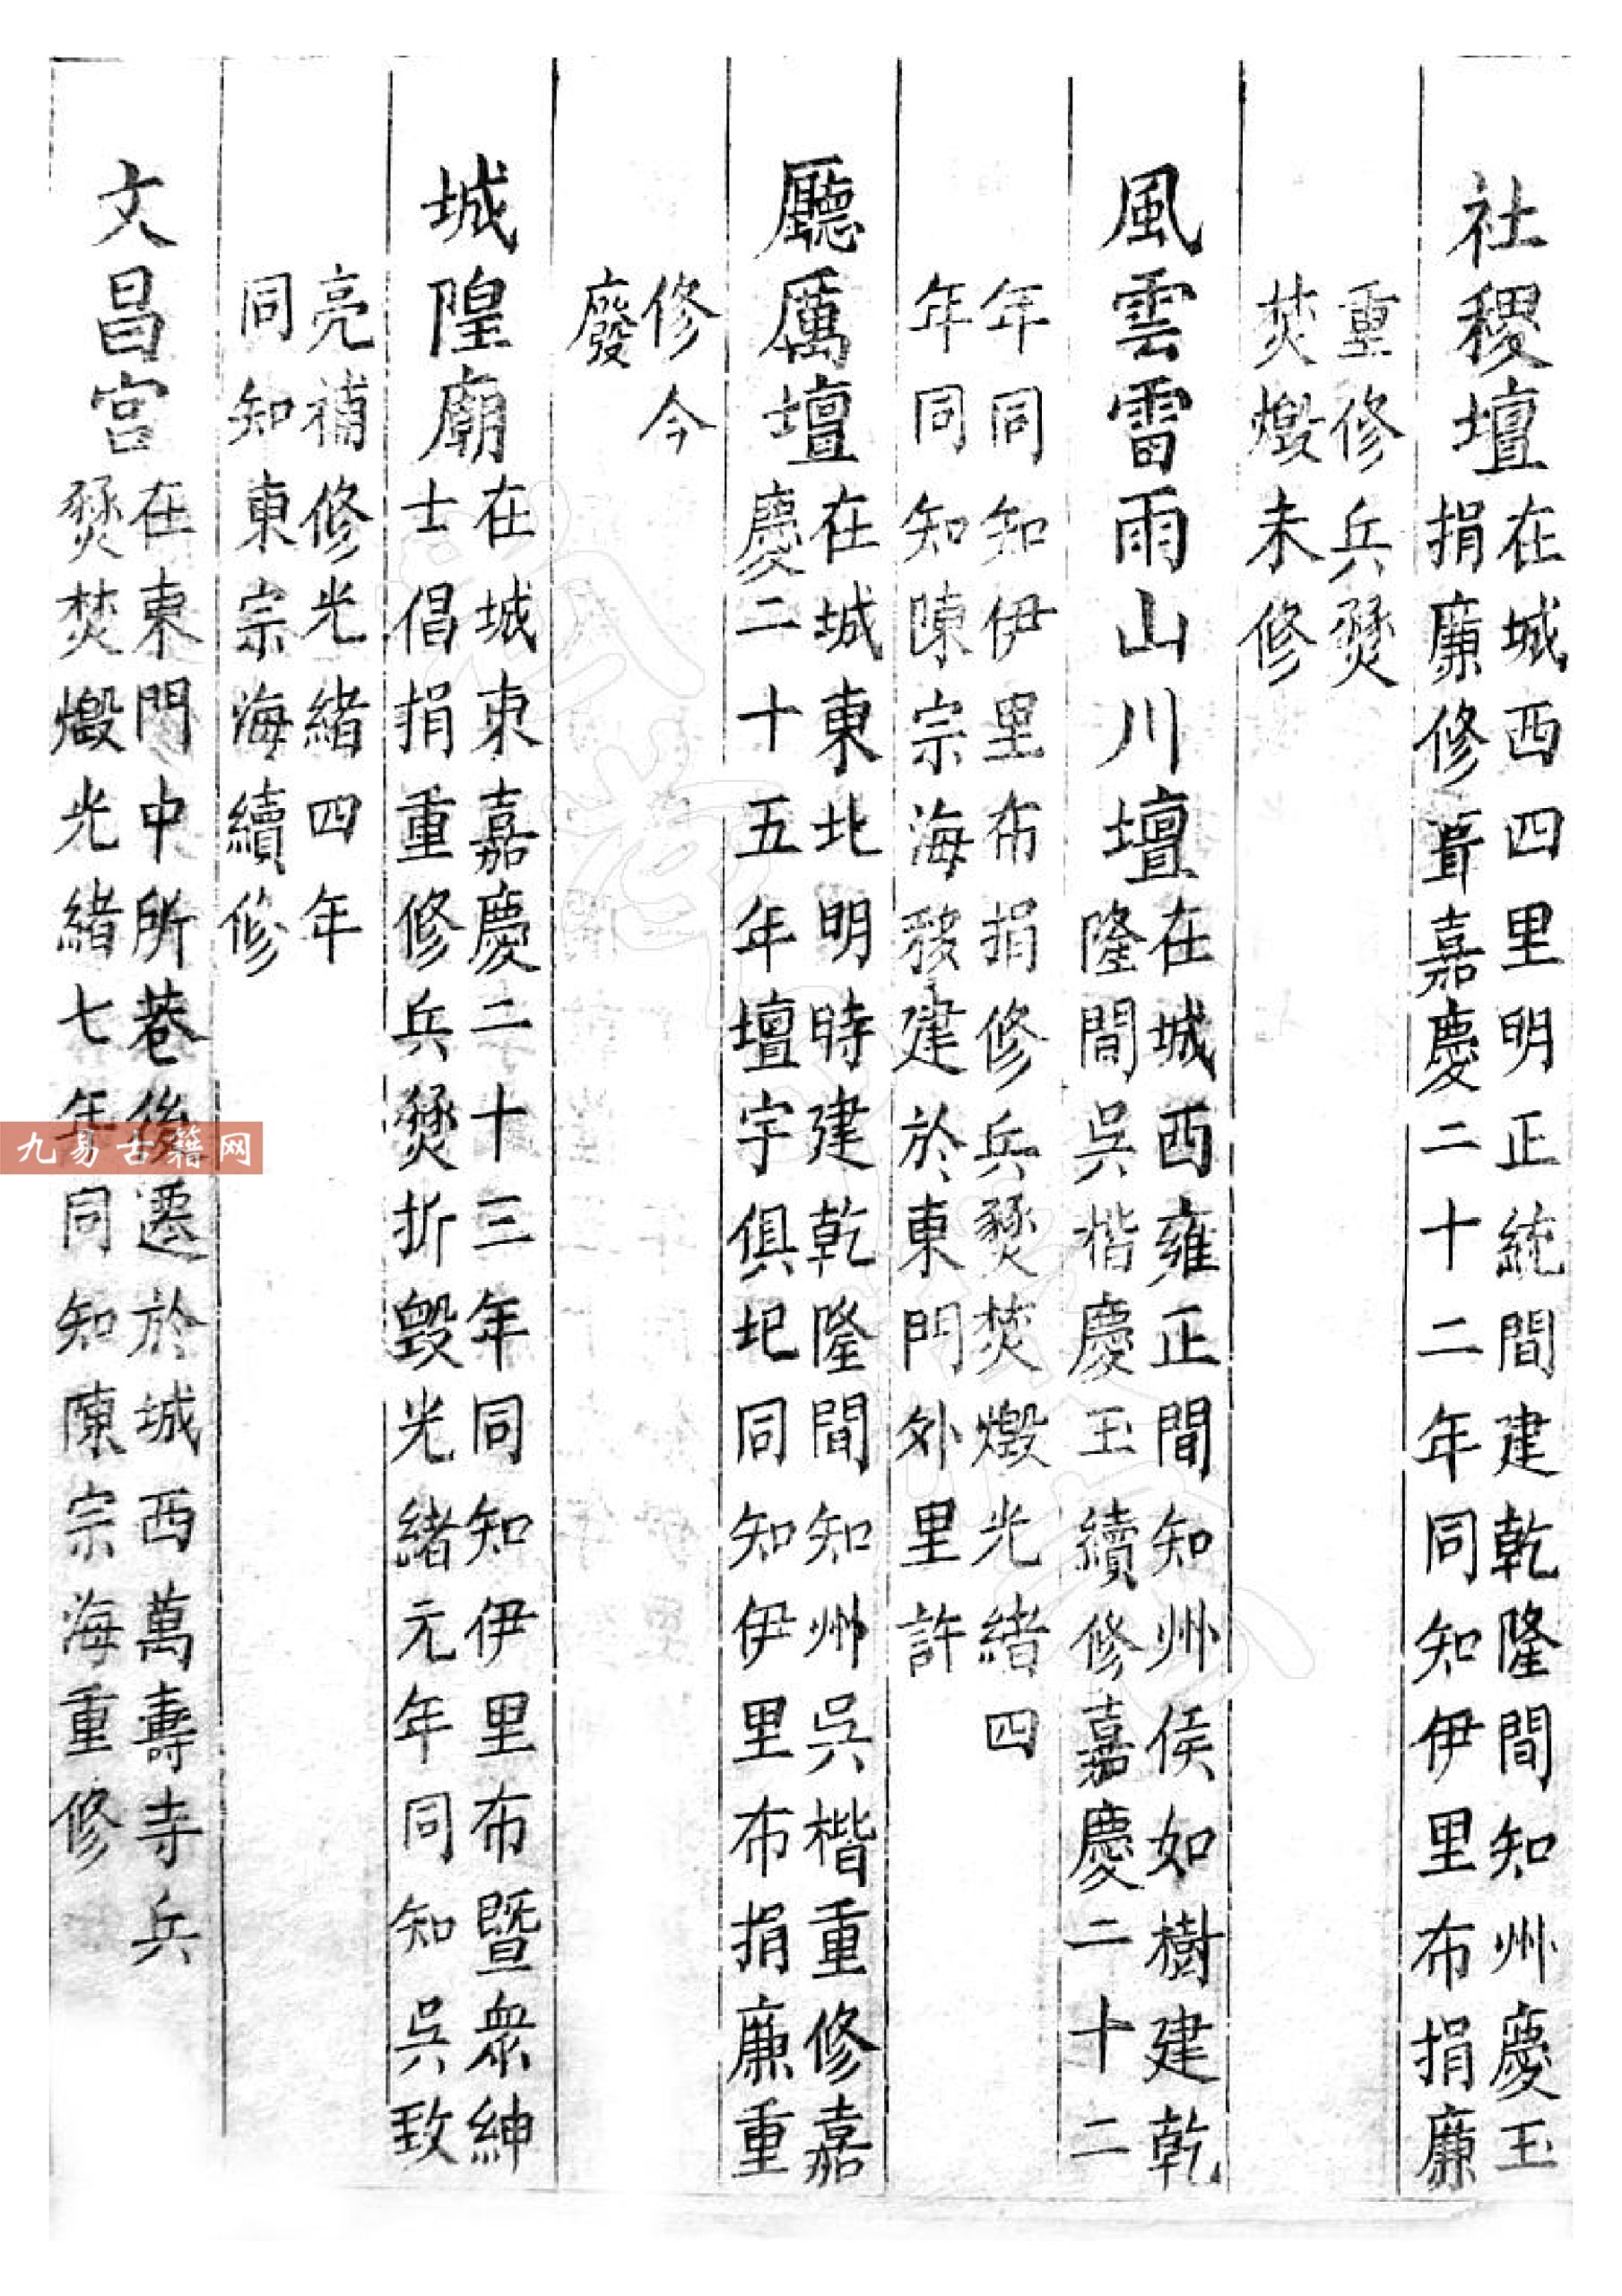 社稷壇在城西四里明正統間建乾隆間知州慶玉
捐廉修葺嘉慶二十二年同知伊里布捐廉
重修兵燹
焚燬未修
風雲雷雨山川壇在城西雍正間知州侯如樹建乾
隆間吳楷慶玉續修嘉慶二十二
年同知伊里布捐修兵燹焚燬光緒四
年同知陳宗海移建於東門外里許
廳厲壇在城東北明時建乾隆間知州吳楷重修嘉
慶二十五年壇宇俱圮同知伊里布捐廉重
修今
廢
城隍廟在城東嘉慶二十三年同知伊里布暨衆紳
士倡捐重修兵燹折毀光緒元年同知吳致
亮補修光緒四年
同知東宗海續修
文昌宮在東門中所巷後遷於城西萬壽寺兵
燹焚燬光緒七年同知陳宗海重修
九易古籍网